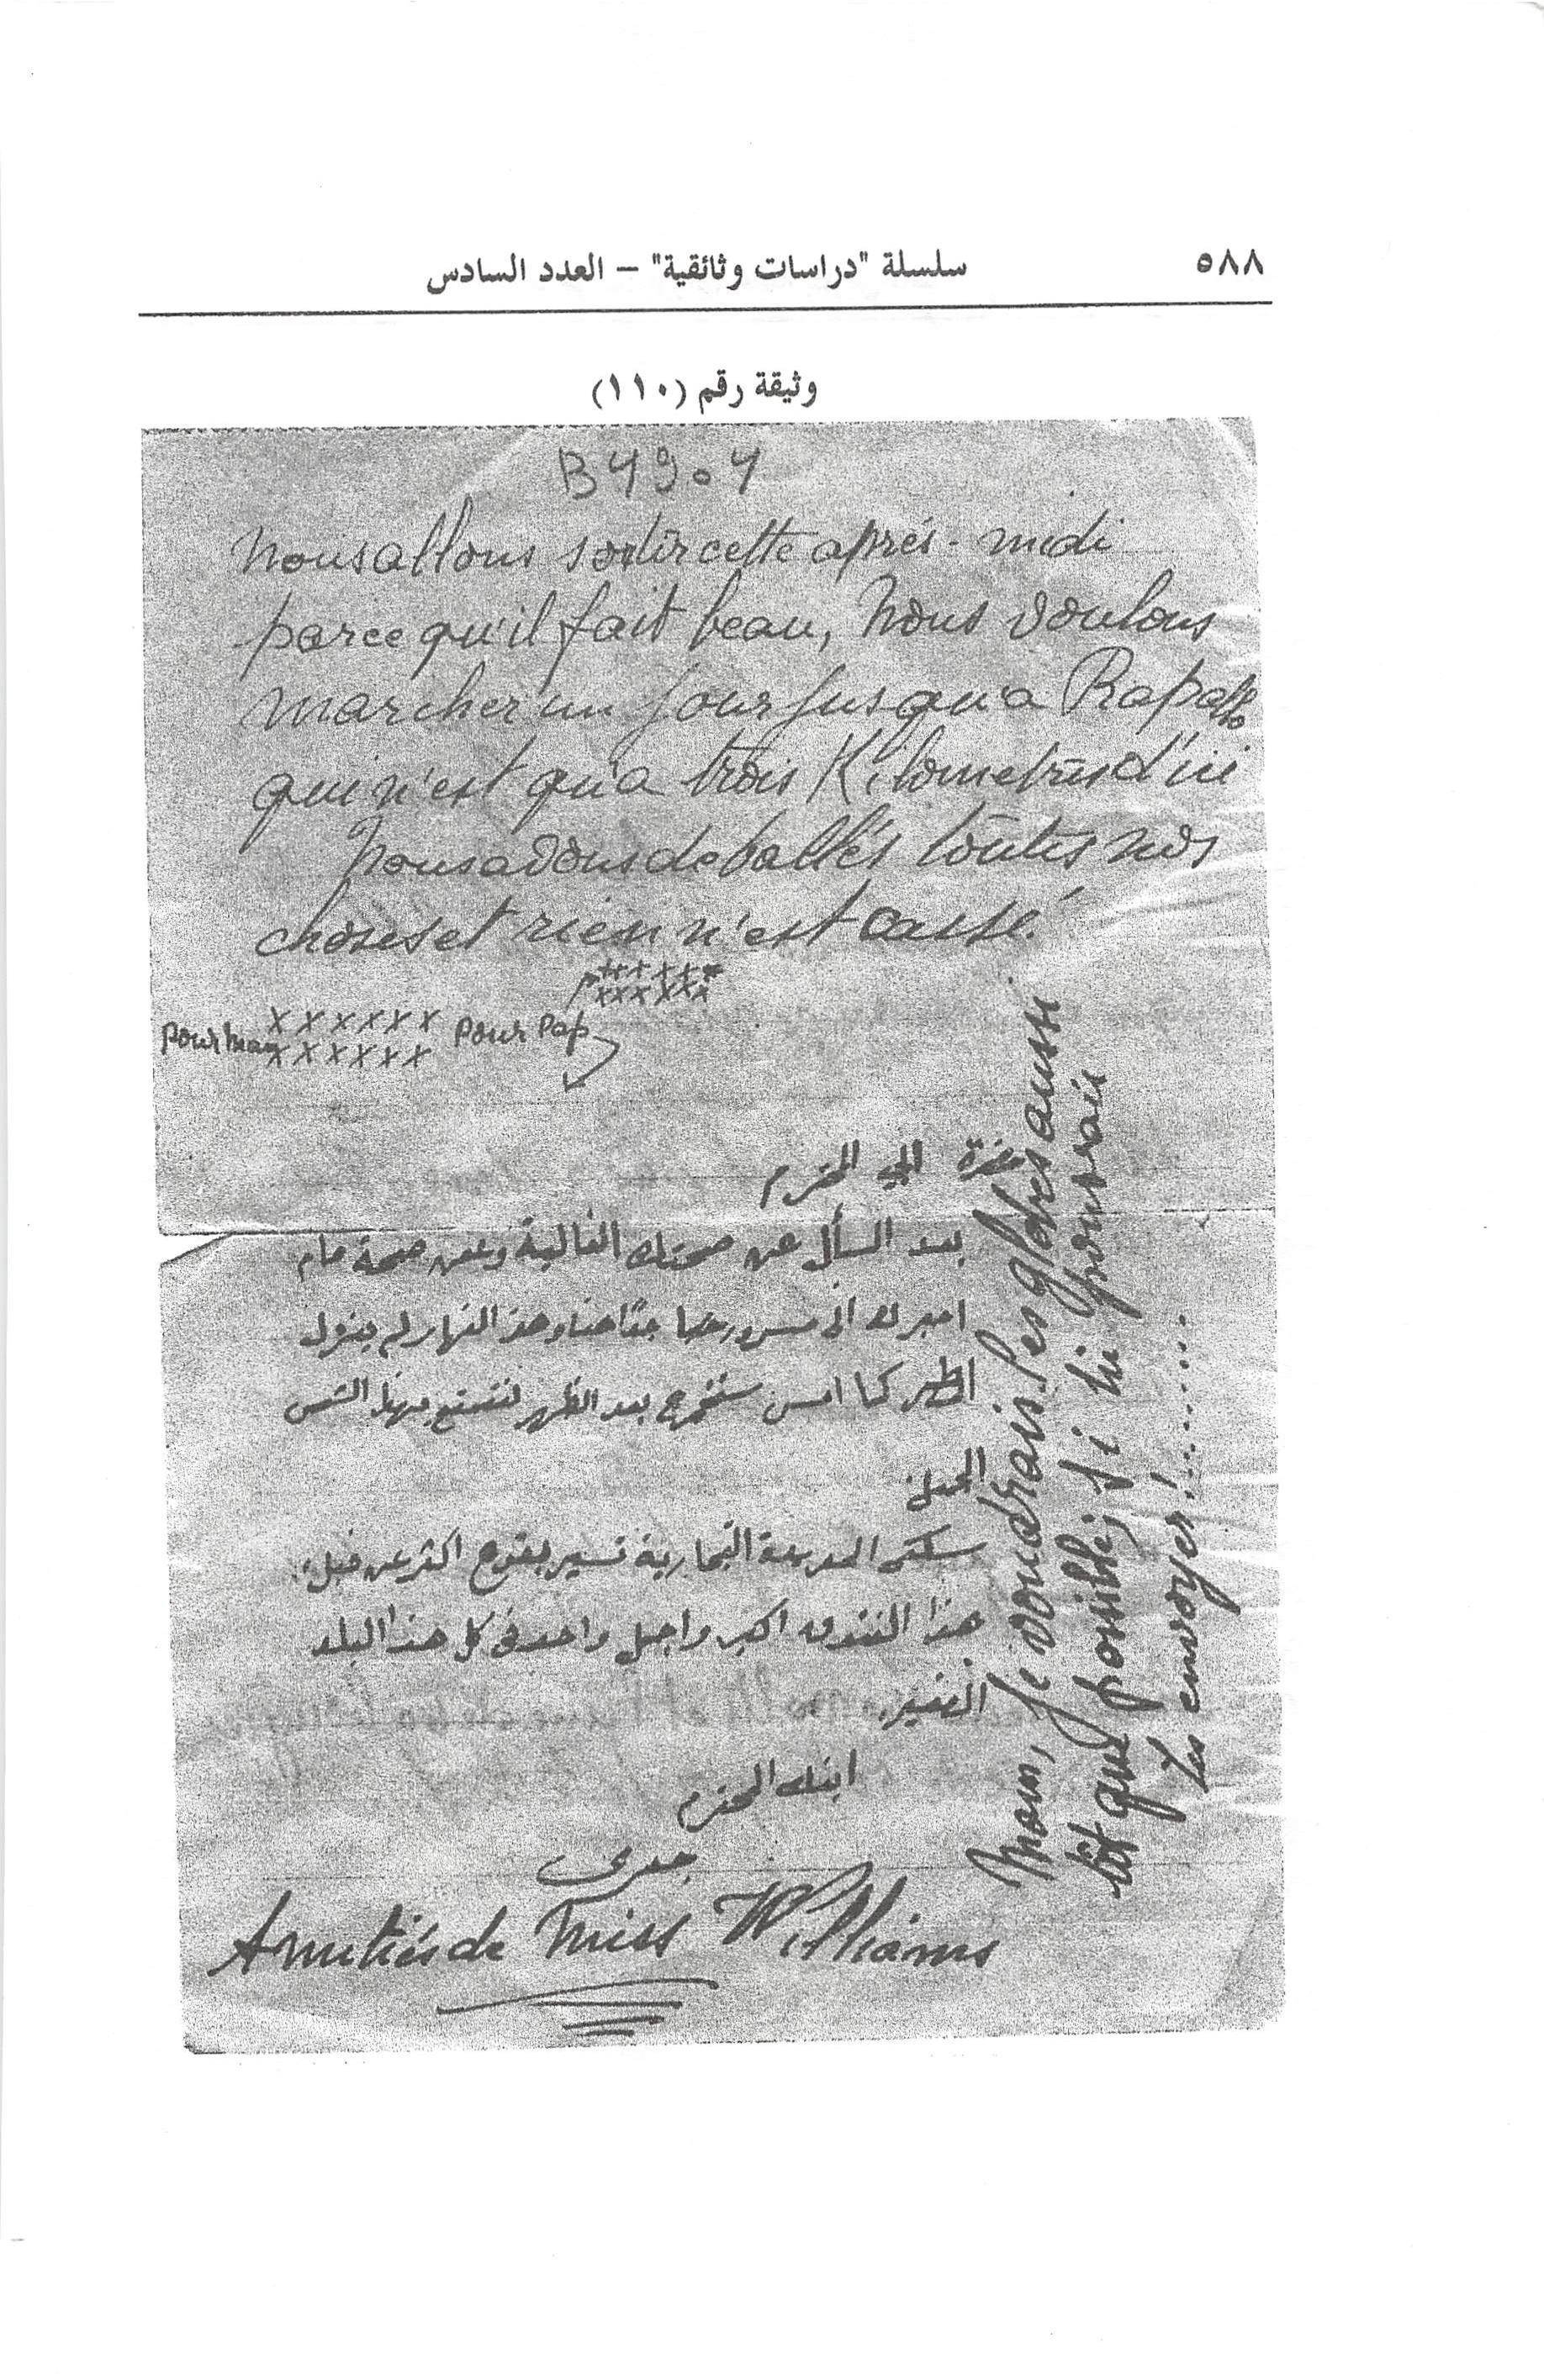 ٥٨٨
سلسلة "دراسات وثائقية" – العدد السادس
وثيقة رقم (١١٠)
B4904
Nous allons sortir cette aprés-midi
parce qu'il fait beau, Nous voulons
marcher un jour jusqu'a Rapallo
qui n'est qu'a trois Kilometres d'ici
Nous avons deballés toutes nos
choses et rien n'est cassé!
xxxxxx
xxxxxx
Pour Mam xxxxxx Pour Pap
xxxxxx
حضرة ابي المحترم
بعد السأل عن صحتك الغالية وعن صحة مام
اخبرك اني مسرور جدًا هنا وهذ النهار لم ينزل
المطر كما امس سنخرج بعد الظهر لنتمتع بهذا الشمس
الجميل
سكتي الحديدة البخارية تسير بقوة اكثر عن قبل،
هذا الفندق اكبر واجمل واحد في كل هذا البلد
الصغير.
ابنك المحترم
جدى
Amitiés de Miss Williams
Mam, Je voudrais les globes aussi
tôt que possible, si tu pourrais
les envoyer!........